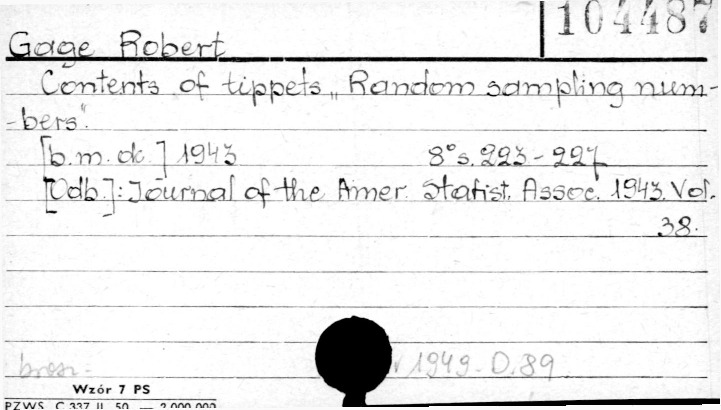 104487
Gage Robert
Contents of tippets „Random sampling num-
-bers".
[b.m.dr.] 1943 8° s. 223-227
[Odb.]: Journal of the Amer. Statist. Assoc. 1943. Vol.
38.
brosz. 1949. D. 89
Wzór 7 PS
PZWS. C 337 II. 50. — 2 000 000